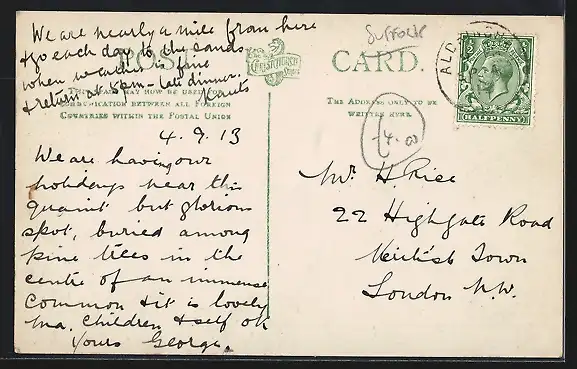 We are nearly a mile from here
& go each day to the sands
when weather is fine
& return at 5pm - late dinner.
POST
CHRISTCHURCH
CARD.
Suffolk
ALD
HALFPENNY
MAY NOW BE USED FOR
COMMUNICATION BETWEEN ALL FOREIGN
COUNTRIES WITHIN THE POSTAL UNION
THE ADDRESS ONLY TO BE
WRITTEN HERE.
4.00
4.9.13
We are having our
holidays near this
quaint but glorious
spot, buried among
pine trees in the
centre of an immense
Common & it is lovely
Ma, Children & self ok
Yours George.
Mr. H. Rice
22 Highgate Road
Kentish Town
London N.W.